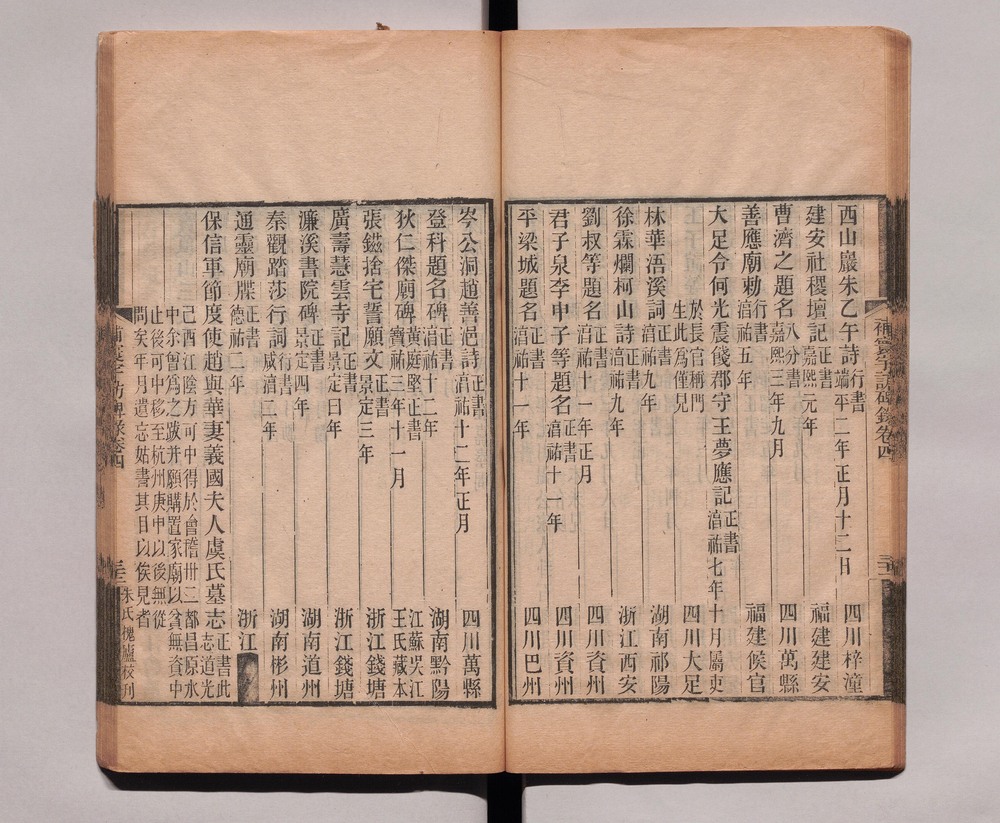 西山巖朱乙午詩 行書 端平二年正月十二日 四川梓潼
建安社稷壇記 正書 嘉熙元年 福建建安
曹濟之題名 八分書 嘉熙三年九月 四川萬縣
善應廟勅 行書 淳祐五年 福建候官
大足令何光震餞郡守王夢應記 正書 淳祐七年十月屬吏
於長官稱門生此爲僅見 四川大足
林華浯溪詞 正書 淳祐九年 湖南祁陽
徐霖爛柯山詩 正書 淳祐九年 浙江西安
劉叔等題名 正書 淳祐十一年正月 四川資州
君子泉李申子等題名 正書 淳祐十一年 四川資州
平梁城題名 正書 淳祐十一年 四川巴州
補寰宇訪碑錄卷四
岑公洞趙善浥詩 正書 淳祐十二年正月 四川萬縣
登科題名碑 正書 淳祐十二年 湖南黔陽
狄仁傑廟碑 黃庭堅正書 寶祐三年十一月 江蘇吳江王氏藏本
張鎡捨宅誓願文 正書 景定三年 浙江錢塘
廣壽慧雲寺記 正書 景定曰年 浙江錢塘
濂溪書院碑 正書 景定四年 湖南道州
秦觀踏莎行詞 行書 咸淳二年 湖南彬州
通靈廟牒 正書 德祐二年 浙江
保信軍節度使趙與華妻義國夫人虞氏墓志 正書此志道光
己酉江陰方可中得於會稽卅二都昌原水
中尒曾爲之跋并願購置家廟以貧無資中
止後可中移至杭州庚申以後無從
問矣年月遺忘姑書其目以俟見者
補寰宇訪碑錄卷四
朱氏槐廬校刊